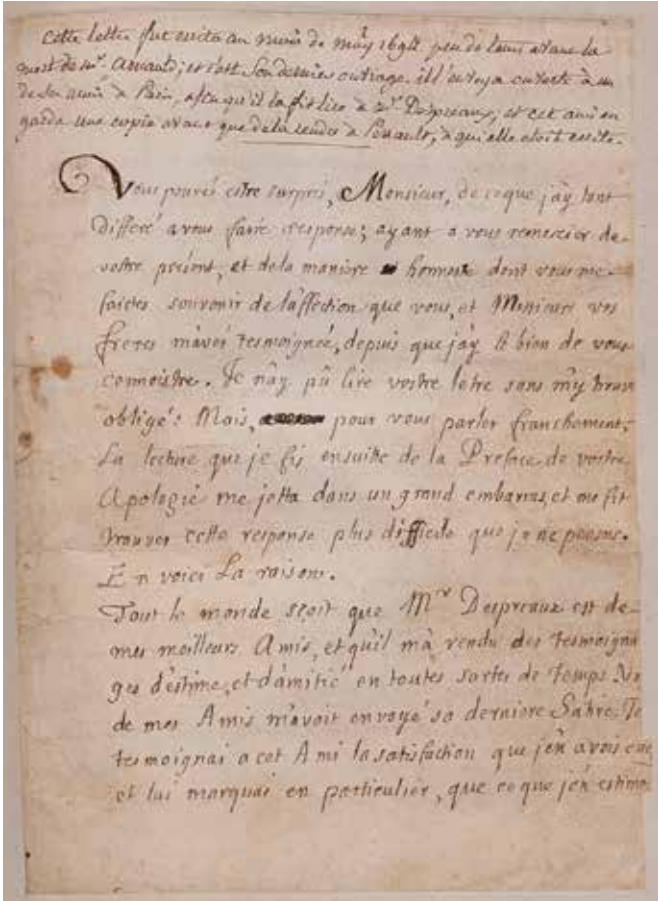 cette lettre fut escrite au mois de may 1694 peu de tems avant la
mort de mr. Arnauld; et c'est son dernier ouvrage. il l'envoya ouverte à un
de ses amis à Paris, afin qu'il la fit lire à mr. Despreaux, et cet ami en
garda une copie avant que de la rendre à Perrault, à qui elle étoit escrite.
Vous pouvés estre surpris, Monsieur, de ce que j'ay tant
differé a vous faire response; ayant a vous remercier de
vostre present, et de la maniere honneste dont vous me
faictes souvenir de l'affection que vous, et Messieurs vos
freres m'avés tesmoignée, depuis que j'ay le bien de vous
connoistre. Je n'ay pû lire vostre letre sans m'y trouver
obligé: Mais, pour vous parler franchement,
La lecture que je fis ensuitte de la Preface de vostre
Apologie me jetta dans un grand embarras, et me fit
trouver cette response plus difficile que je ne pensois.
En voici La raison.
Tout le monde sçoit que Mr Despreaux est de
mes meilleurs Amis, et qu'il m'a rendu des tesmoigna
ges d'estime, et d'amitié en toutes sortes de temps.
de mes Amis m'avoit envoyé sa derniere Satire. Je
tesmoignai a cet Ami la satisfaction que j'en avois eue
et lui marquai en particulier, que ce que j'en estimois